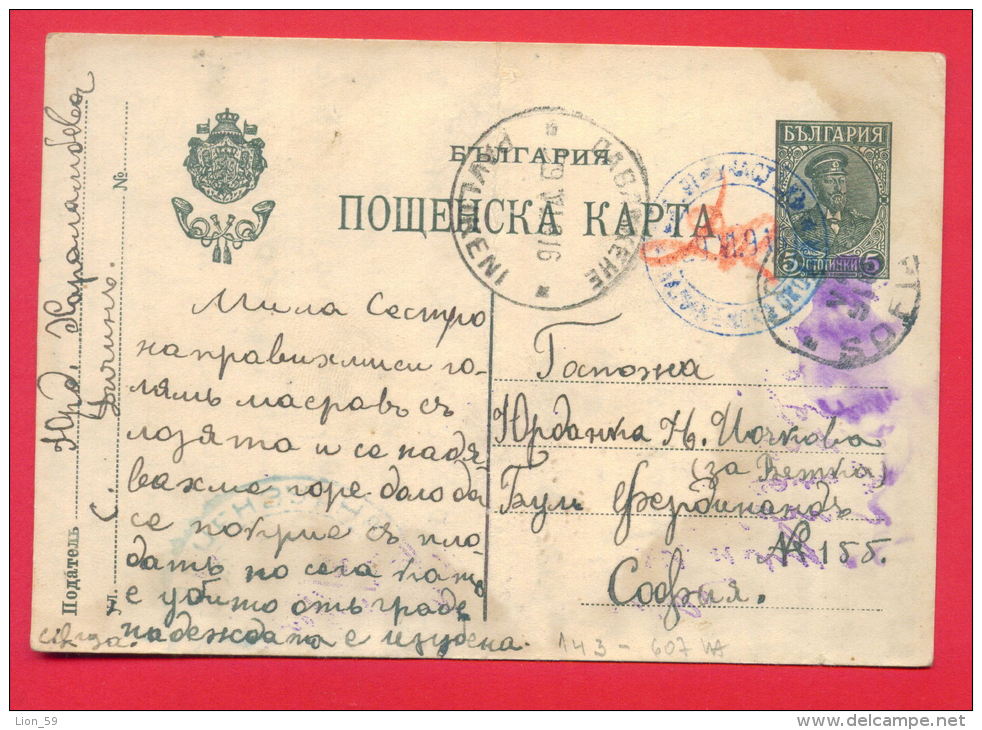 БЪЛГАРИЯ
ПОЩЕНСКА КАРТА
БЪЛГАРИЯ
5 СТОТИНКИ 5
ПАВЛИКЕНЕ
PAVLIKENI
SOFIA
Податель
Юрд. Хараланбова
Ул.
№
Мила Сестро
направихмиси го-
лямъ масравъ съ
лозята и се надя
вахме горе долу да
се покрие съ пло
дать но сега като
е убито отъ градъ
надеждата е изгубена.
Госпожа
Юрданка Н. Иочкова
(за Ветка)
Бул Фердинандъ
№ 155.
София.
143 - 607
Lion_59
delcampe.net